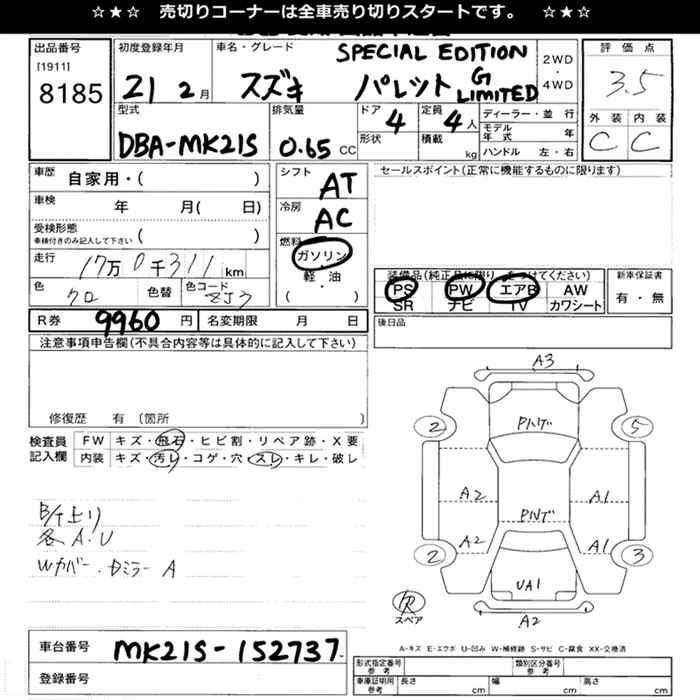 ☆★☆ 売切りコーナーは全車売り切りスタートです。 ☆★☆
出品番号
[1911]
8185
初度登録年月
21 2月
車名・グレード
SPECIAL EDITION
スズキ パレット G
LIMITED
2WD
・
4WD
評価点
3.5
外装 内装
C C
型式
DBA-MK21S
排気量
0.65 CC
ドア
4
定員
4人
形状
積載
kg
ディーラー・並行
モデル
年式 年
ハンドル 左・右
車歴
自家用・( )
車検
年 月( 日)
受検形態
車検付きのみ記入して下さい ( )
走行
17万0千311km
色
クロ
色替
色コード
ZJ3
シフト
AT
冷房
AC
燃料
ガソリン
軽・油
( )
セールスポイント(正常に機能するものに限ります)
装備品(純正品に限り、○をつけてください)
PS PW エアB AW
SR ナビ TV カワシート
新車保証書
有・無
後日品
R券 9960円 名変期限 月 日
注意事項申告欄(不具合内容等は具体的に記入して下さい)
修復歴 有(箇所 )
検査員
記入欄
FW キズ・飛石・ヒビ割・リペア跡・X要
内装 キズ・汚レ・コゲ・穴・スレ・キレ・破レ
B/T上り
各A・U
Wカバー・Dミラー A
A3
2 5
A2 A1
A2 A1
2 3
UA1
A2
R
スペア
A-キズ E-エクボ U-凹み W-補修跡 S-サビ C-腐食 XX-交換済
車台番号 MK21S-152737
登録番号
形式指定番号
参考
類別区分番号
参考
車庫証明用
参考
長さ cm 幅 cm 高さ cm